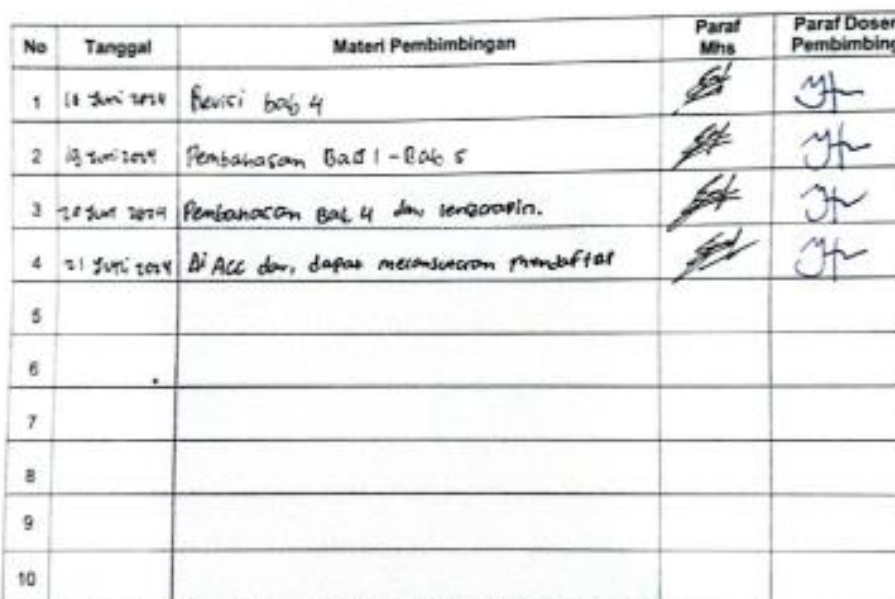 No Tanggal Materi Pembimbingan Paraf Mhs Paraf Dosen Pembimbing
1 18 Juni 2024 Revisi bab 4
2 19 Juni 2024 Pembahasan Bab 1 - Bab 5
3 20 Juni 2024 Pembahasan Bab 4 dan
4 21 Juni 2024 Di ACC dan, dapat mendaftar
5
6
7
8
9
10